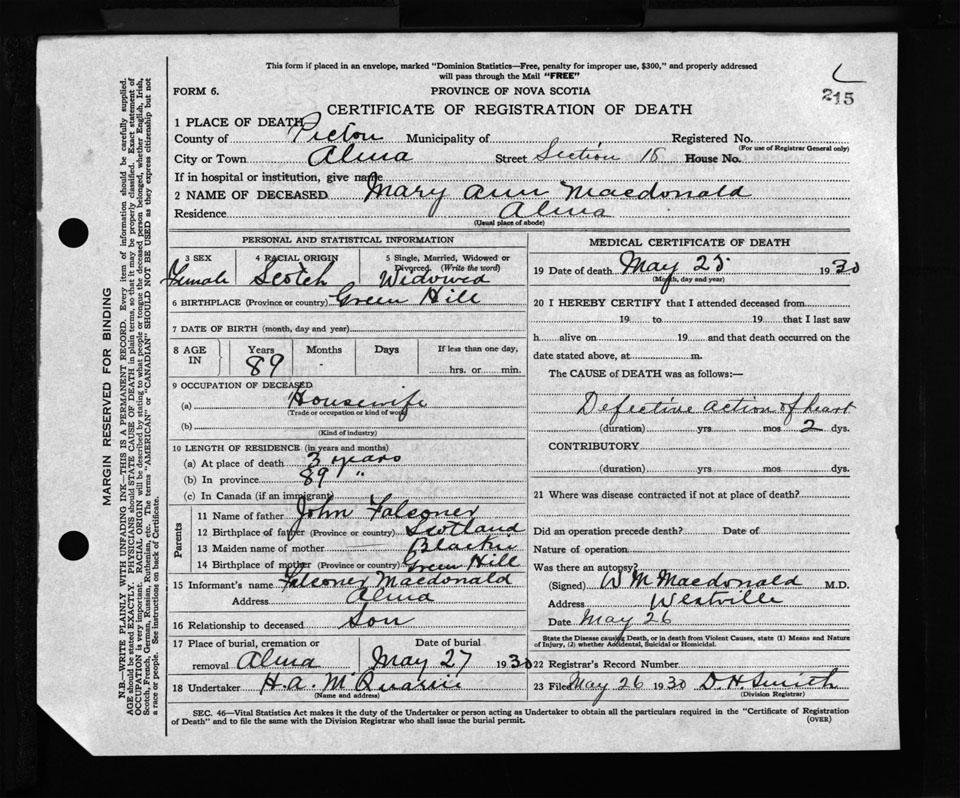 This form if placed in an envelope, marked "Dominion Statistics—Free, penalty for improper use, $300," and properly addressed
will pass through the Mail "FREE"
FORM 6.
PROVINCE OF NOVA SCOTIA
215
CERTIFICATE OF REGISTRATION OF DEATH
1 PLACE OF DEATH
County of Pictou Municipality of Registered No.
(For use of Registrar General only)
City or Town Alma Street Section 18 House No.
If in hospital or institution, give name
2 NAME OF DECEASED Mary Ann Macdonald
Residence Alma
(Usual place of abode)
PERSONAL AND STATISTICAL INFORMATION
3 SEX 4 RACIAL ORIGIN 5 Single, Married, Widowed or
Divorced. (Write the word)
Female Scotch Widowed
6 BIRTHPLACE (Province or country) Green Hill
7 DATE OF BIRTH (month, day and year)
8 AGE IN Years Months Days If less than one day,
89 hrs. or min.
9 OCCUPATION OF DECEASED
(a) Housewife
(Trade or occupation or kind of work)
(b)
(Kind of industry)
10 LENGTH OF RESIDENCE (in years and months)
(a) At place of death 3 years
(b) In province 89 "
(c) In Canada (if an immigrant)
Parents
11 Name of father John Falconer
12 Birthplace of father (Province or country) Scotland
13 Maiden name of mother Blackie
14 Birthplace of mother (Province or country) Green Hill
15 Informant's name Falconer Macdonald
Address Alma
16 Relationship to deceased Son
17 Place of burial, cremation or Date of burial
removal Alma May 27 1930
18 Undertaker H. A. McQuarrie
(Name and address)
MEDICAL CERTIFICATE OF DEATH
19 Date of death May 25 1930
(Month, day and year)
20 I HEREBY CERTIFY that I attended deceased from
19 to 19 that I last saw
h alive on 19 and that death occurred on the
date stated above, at m.
The CAUSE of DEATH was as follows:—
Defective action of heart
(duration) yrs mos 2 dys.
CONTRIBUTORY
(duration) yrs. mos. dys.
21 Where was disease contracted if not at place of death?
Did an operation precede death? Date of
Nature of operation
Was there an autopsy?
(Signed) W M Macdonald M.D.
Address Westville
Date May 26
State the Disease causing Death, or in death from Violent Causes, state (1) Means and Nature
of Injury, (2) whether Accidental, Suicidal or Homicidal.
22 Registrar's Record Number
23 Filed May 26 1930 D. H. Smith
(Division Registrar)
SEC. 46—Vital Statistics Act makes it the duty of the Undertaker or person acting as Undertaker to obtain all the particulars required in the "Certificate of Registration
of Death" and to file the same with the Division Registrar who shall issue the burial permit.
(OVER)
MARGIN RESERVED FOR BINDING
N.B.—WRITE PLAINLY WITH UNFADING INK—THIS IS A PERMANENT RECORD. Every item of information should be carefully supplied.
AGE should be stated EXACTLY. PHYSICIANS should STATE CAUSE OF DEATH in plain terms, so that it may be properly classified. Exact statement of
OCCUPATION is very important. RACIAL ORIGIN will be described by stating to what people or tongue the deceased person belonged, whether English, Irish,
Scotch, French, German, Russian, Ruthenian, etc. The terms "AMERICAN" or "CANADIAN" SHOULD NOT BE USED as they express citizenship but not
a race or people. See instructions on back of Certificate.